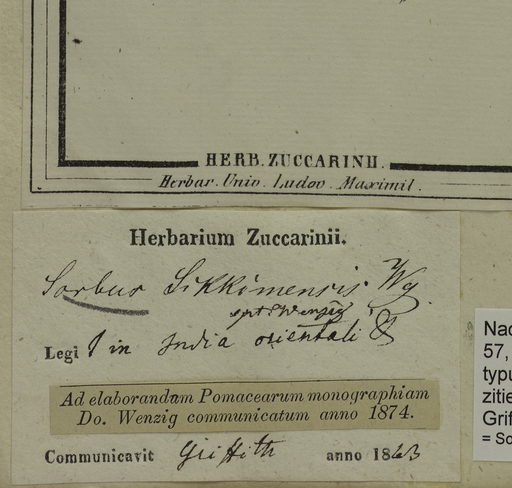 HERB. ZUCCARINII.
Herbar. Univ. Ludov. Maximil.
Herbarium Zuccarinii.
Sorbus Sikkimensis Wg.
Legi in India orientali
Ad elaborandam Pomacearum monographiam
Do. Wenzig communicatum anno 1874.
Communicavit Griffith anno 1863
Nac
57,
typu
zitie
Grif
= So